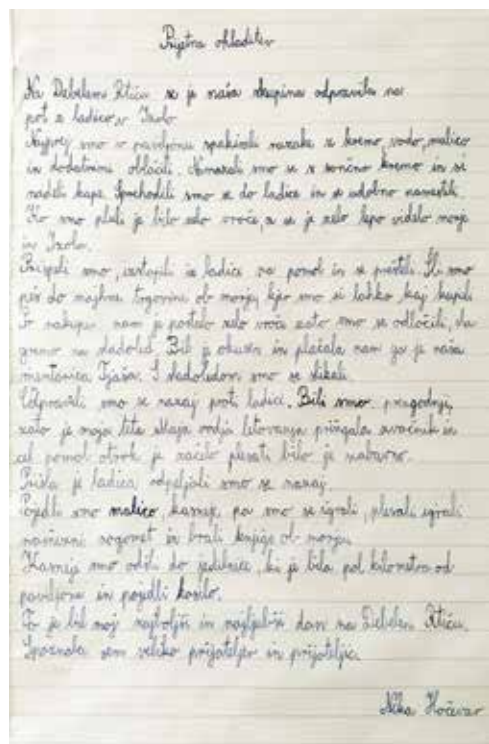 Prijetna ohladitev
Na Debelem Rtiču se je naša skupina odpravila na
pot z ladico v Izolo.
Najprej smo v paviljonu spakirali nazake z kremo, vodo, malico
in dodatnimi oblačili. Namazali smo se s sončno kremo in si
nadeli kape. Sprehodili smo se do ladice in se udobno namestili.
Ko smo pluli je bilo zelo vroče, a se je zelo lepo videlo morje
in Izolo.
Prispeli smo, izstopili iz ladice na pomol in se prešteli. Šli smo
peš do majhne trgovine ob morju, kjer smo si lahko kaj kupili.
Po nakupu nam je postalo zelo vroče zato smo se odločili, da
gremo na sladoled. Bil je okusen in plačala nam ga je naša
mentorica Tjaša. S sladoledom smo se slikali.
Odpravili smo se nazaj proti ladici. Bili smo prezgodnji,
zato je moja teta Maja vodja letovanja prižgala zvočnik in
cel pomol otrok je začelo plesati bilo je zabavno.
Prišla je ladica, odpeljali smo se nazaj.
Pojedli smo malico, kasneje pa smo se igrali, plesali, igrali
namizni nogomet in brali knjige ob morju.
Kasneje smo odšli do jedilnice, ki je bila pol kilometra od
paviljona in pojedli kosilo.
To je bil moj najboljši in najljubši dan na Debelem Rtiču.
Spoznala sem veliko prijateljev in prijateljic.
Nika Hočevar